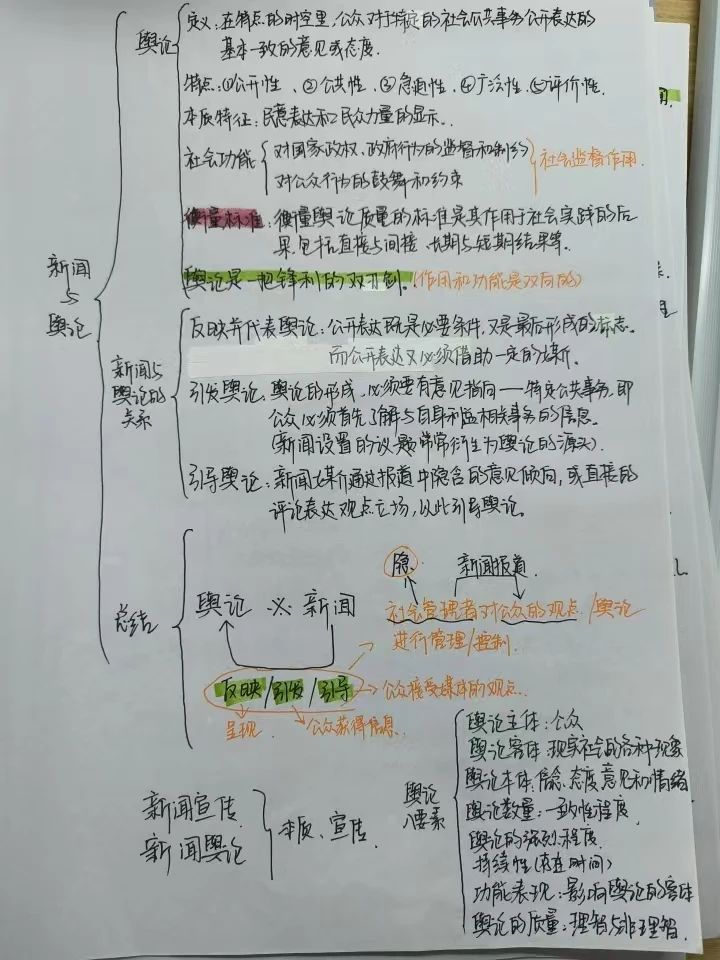 新闻与舆论
舆论
定义:在特点的时空里,公众对于特定的社会公共事务公开表达的
基本一致的意见或态度.
特点:①公开性、②公共性、③急迫性、④广泛性、⑤评价性.
本质特征:民意表达和民众力量的显示.
社会功能
对国家政权、政府行为的监督和制约
对公众行为的鼓舞和约束
社会监督作用.
衡量标准:衡量舆论质量的标准是其作用于社会实践的后
果,包括直接与间接、长期与短期结果等.
舆论是一把锋利的双刃剑.(作用和功能是双向的)
新闻与舆论的关系
反映并代表舆论:公开表达既是必要条件,又是最后形成的标志.
而公开表达又必须借助一定的媒介.
引发舆论:舆论的形成,必须要有意见指向——特定公共事务,即
公众必须首先了解与自身利益相关事务的信息.
(新闻设置的议题常常衍生为舆论的源头).
引导舆论:新闻媒介通过报道中隐含的意见倾向,或直接的
评论表达观点立场,以此引导舆论。
总结
隐.
新闻报道.
舆论 ※ 新闻
社会管理者对公众的观点/舆论
进行管理/控制.
反映/引发/引导
公众接受媒体的观点.
呈现.
公众获得信息.
新闻宣传
新闻舆论
本质、宣传.
舆论八要素
舆论主体:公众
舆论客体:现实社会的各种现象
舆论本体:信念、态度、意见和情绪
舆论数量:一致性程度.
舆论的强烈程度.
持续性(存在时间)
功能表现:影响舆论的客体
舆论的质量:理智与非理智.